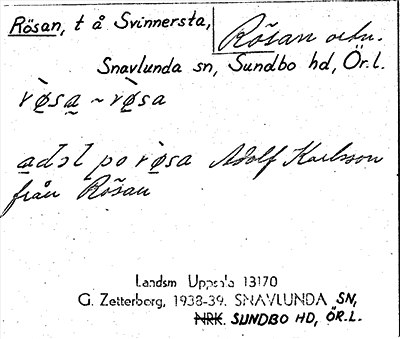 Rösan, t å Svinnersta,
Rösan
Snavlunda sn, Sundbo hd, Ör.l.
rø̀sa̰ ~ rø̀sa
po rø̀sa Adolf Karlsson
från Rösan
Landsm Uppsala 13170
G. Zetterberg, 1938-39. SNAVLUNDA SN,
NRK. SUNDBO HD, ÖR.L.